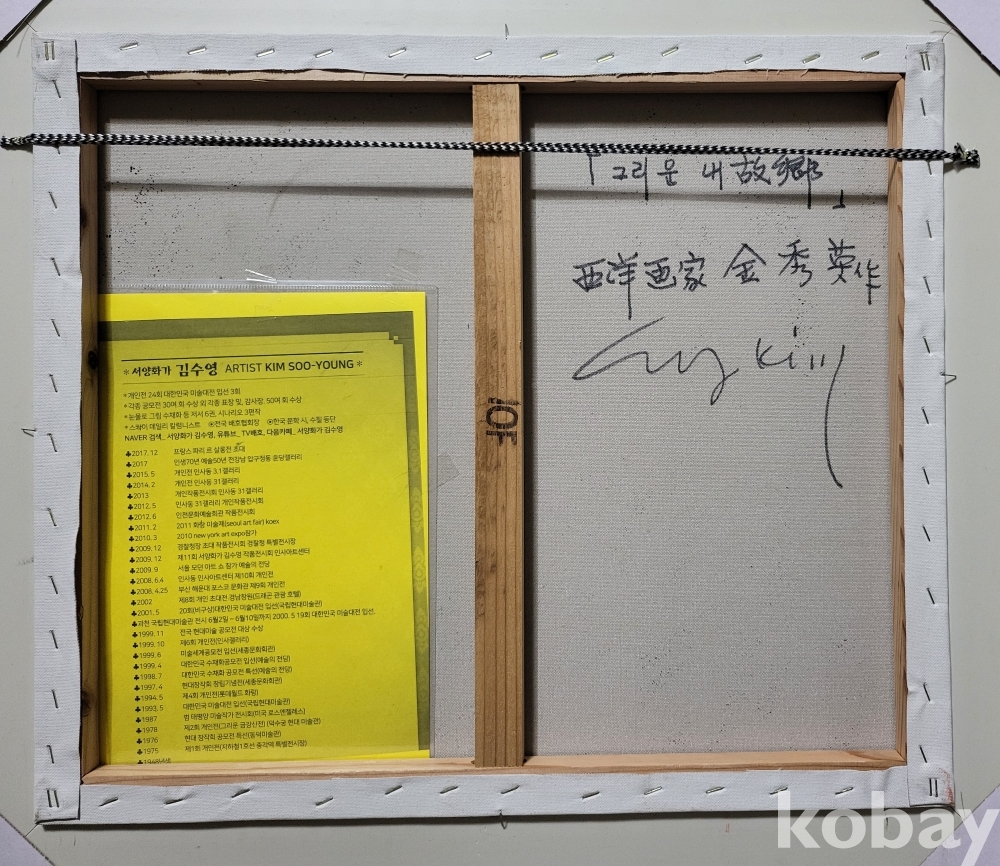 「그리운 내 故鄕」
西洋画家 金秀英作
Kim
10F
*서양화가 김수영 ARTIST KIM SOO-YOUNG*
*개인전 24회 대한민국 미술대전 입선 3회
*각종 공모전 30여 회 수상 외 각종 표창 및, 감사장. 50여 회 수상
*눈물로 그림 수채화 등 저서 6권, 시나리오 3편작
*스콰이 데일리 칼럼니스트 ⊙전국 배호협회장 ⊙한국 문학 시, 수필 등단
NAVER 검색_ 서양화가 김수영, 유튜브_ TV배호, 다음카페_ 서양화가 김수영
♣2017. 12 프랑스 파리 르 살롱전 초대
♣2017 인생70년 예술50년 전강남 압구정동 윤당갤러리
♣2015. 5 개인전 인사동 3.1갤러리
♣2014. 2 개인전 인사동 31갤러리
♣2013 개인작품전시회 인사동 31갤러리
♣2012. 5 인사동 31갤러리 개인작품전시회
♣2012. 6 인천문화예술회관 작품전시회
♣2011. 2 2011 화랑 미술제(seoul art fair) koex
♣2010. 3 2010 new york art expo참가
♣2009. 12 경찰청장 초대 작품전시회 경찰청 특별전시장
♣2009. 12 제11회 서양화가 김수영 작품전시회 인사아트센터
♣2009. 9 서울 모던 아트 쇼 참가 예술의 전당
♣2008. 6.4 인사동 인사아트센터 제10회 개인전
♣2008. 4.25 부산 해운대 포스코 문화관 제9회 개인전
♣2002 제8회 개인 초대전 경남창원(드래곤 관광 호텔)
♣2001. 5 20회(비구상)대한민국 미술대전 입선(국립현대미술관)
♣과천 국립현대미술관 전시 6월2일 ~ 6월10일까지 2000. 5 19회 대한민국 미술대전 입선.
♣1999. 11 전국 현대미술 공모전 대상 수상
♣1999. 10 제6회 개인전(인사갤러리)
♣1999. 6 미술세계공모전 입선(세종문화회관)
♣1999. 4 대한민국 수채화공모전 입선(예술의 전당)
♣1998. 7 대한민국 수채화 공모전 특선(예술의 전당)
♣1997. 4 현대창작회 창립기념전(세종문화회관)
♣1994. 5 제4회 개인전(롯데월드 화랑)
♣1993. 5 대한민국 미술대전 입선(국립현대미술관)
♣1987 범 태평양 미술작가 전시회(미국 로스엔젤레스)
♣1978 제2회 개인전(그리운 금강산전) (덕수궁 현대 미술관)
♣1976 현대 창작회 공모전 특선(동덕미술관)
♣1975 제1회 개인전(지하철1호선 종각역 특별전시장)
♣1948년생
kobay